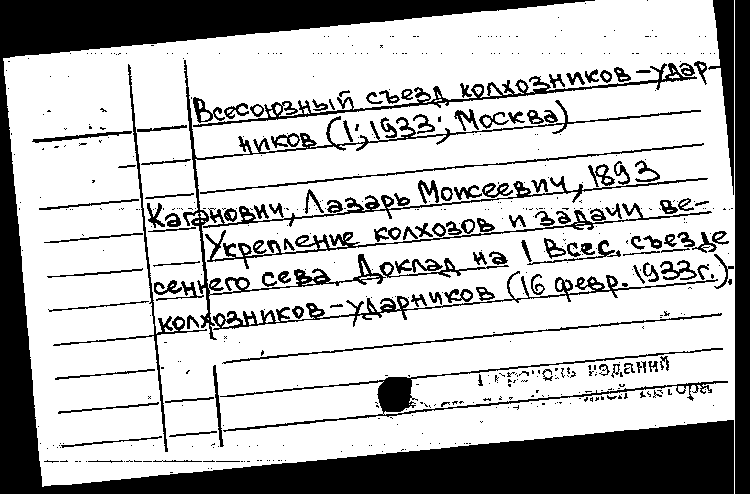 Всесоюзный съезд колхозников-удар-
ников (1; 1933; Москва)
Каганович, Лазарь Моисеевич, 1893
Укрепление колхозов и задачи ве-
сеннего сева. Доклад на I Всес. съезде
колхозников-ударников (16 февр. 1933г.).
Перечень изданий
автора